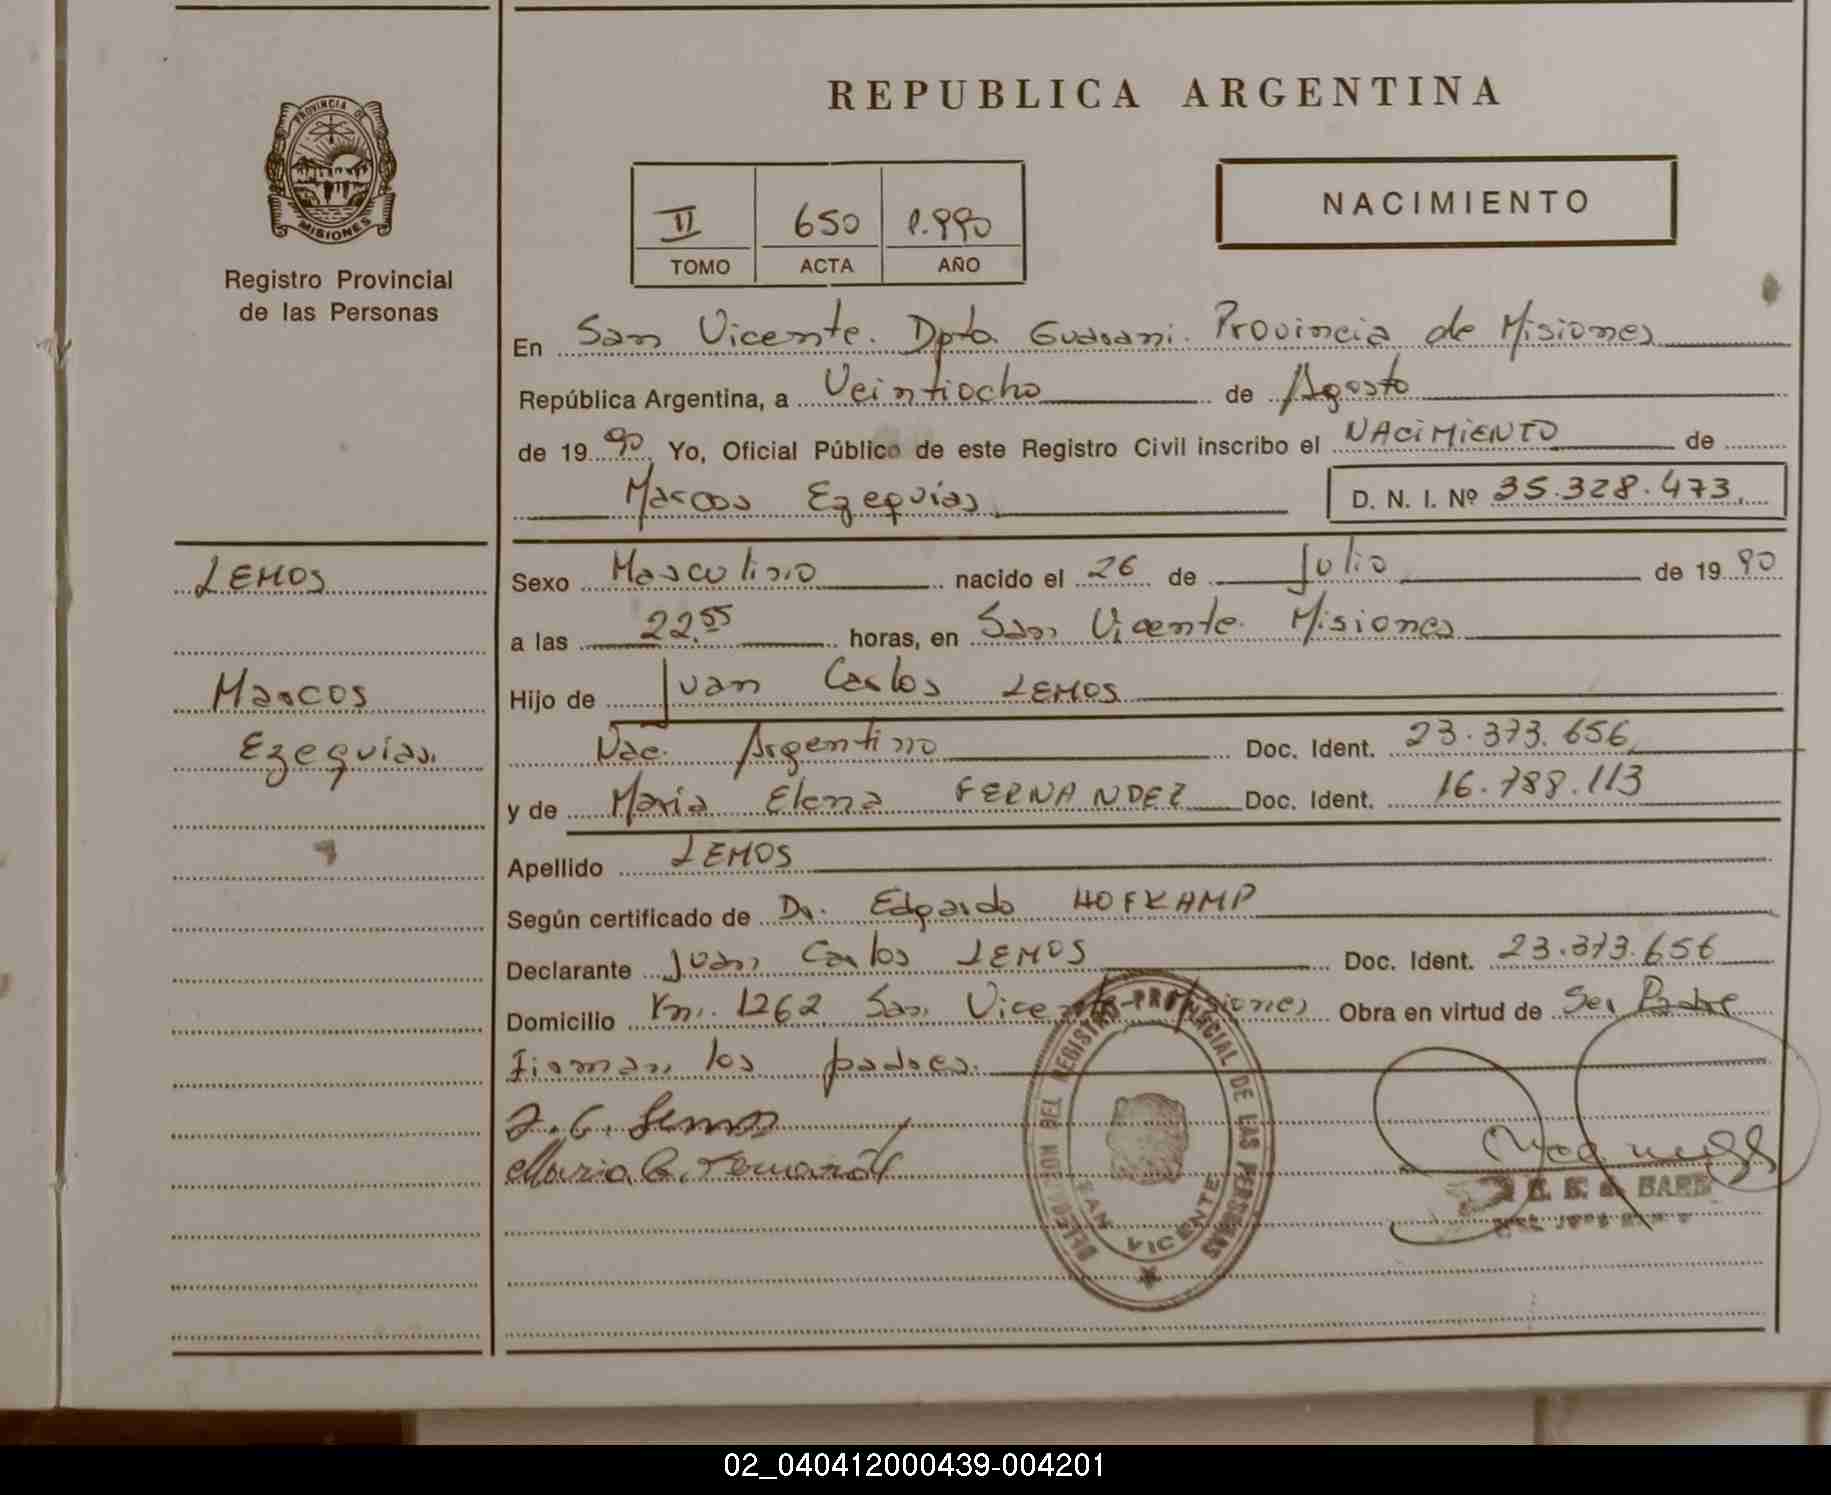 PROVINCIA DE
MISIONES
Registro Provincial
de las Personas
REPUBLICA ARGENTINA
NACIMIENTO
II 650 1.990
TOMO ACTA AÑO
En San Vicente. Dpto. Guarani. Provincia de Misiones
República Argentina, a Veintiocho de Agosto
de 19 90 Yo, Oficial Público de este Registro Civil inscribo el NACIMIENTO de
Marcos Ezequias D. N. I. Nº 35.328.473.
LEMOS
Marcos
Ezequias.
Sexo Masculino nacido el 26 de Julio de 19 90
a las 22.55 horas, en San Vicente. Misiones
Hijo de Juan Carlos LEMOS
Nac. Argentino Doc. Ident. 23.373.656
y de Maria Elena FERNANDEZ Doc. Ident. 16.788.113
Apellido LEMOS
Según certificado de Dr. Edgardo HOFKAMP
Declarante Juan Carlos LEMOS Doc. Ident. 23.373.656
Domicilio Km. 1262 San Vicente Misiones Obra en virtud de Ser Padre
Firman los padres.
J. C. Lemos
Maria E. Fernandez
DELEGACION DEL REGISTRO PROVINCIAL DE LAS PERSONAS
SAN VICENTE
02_040412000439-004201